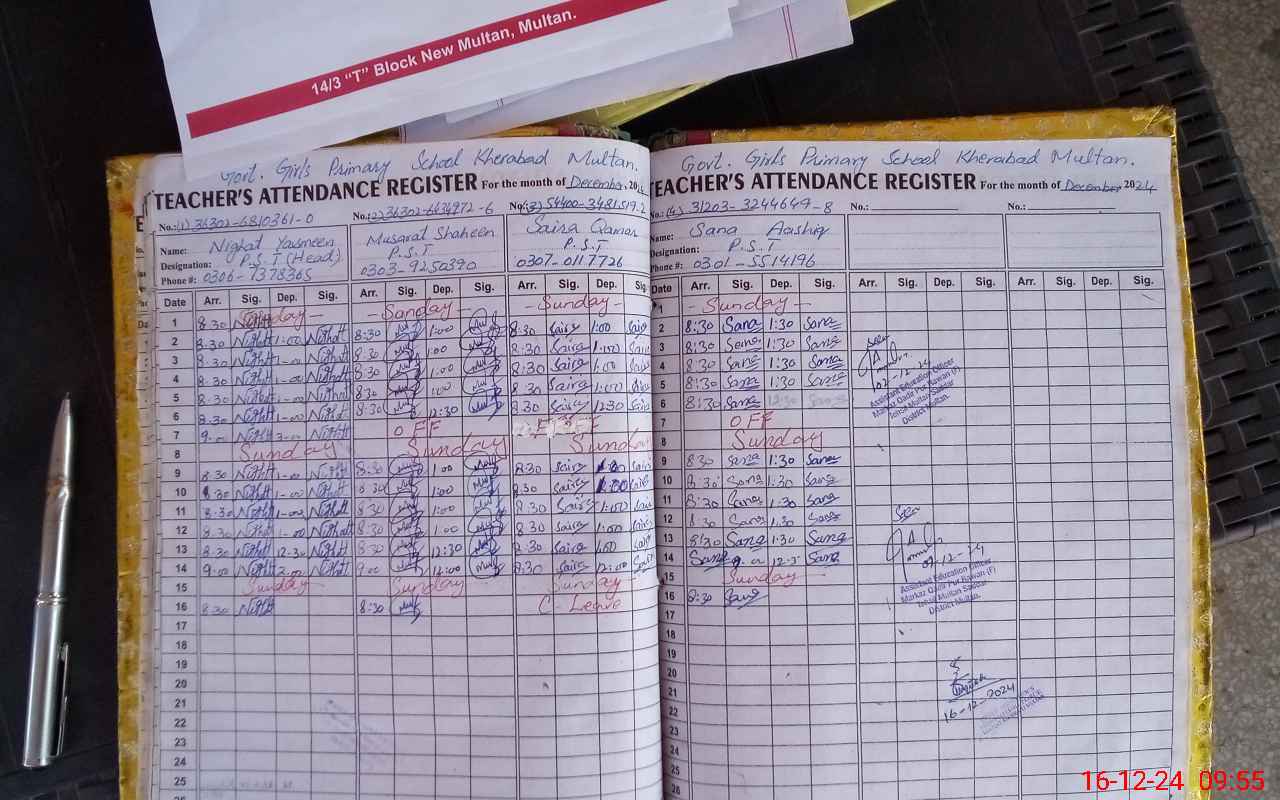 14/3 "T" Block New Multan, Multan.
Govt. Girls Primary School Kherabad Multan.
TEACHER'S ATTENDANCE REGISTER For the month of December, 202
No.:(1) 36302-6810361-0 No.:(2) 36302-6434972-6 No.:(3) 54400-3481519-2
Name: Nighat Yasmeen Musarat Shaheen Saira Qamar
Designation: P.S.T (Head) P.S.T P.S.T
Phone #: 0306-7378365 0303-9250390 0307-0117726
Date Arr. Sig. Dep. Sig. Arr. Sig. Dep. Sig. Arr. Sig. Dep. Sig.
1 -Sunday- -Sunday- -Sunday-
2 8:30 1-00 8:30 1:00 8:30 Saira 1:00
3 8:30 1-00 8:30 1:00 8:30 Saira 1:00
4 8:30 1-00 8:30 1:00 8:30 Saira 1:00
5 8:30 1-00 8:30 1:00 8:30 Saira 1:00
6 8:30 1-00 8:30 12:30 8:30 Saira 12:30
7 9-00 2-00 OFF
8 Sunday Sunday Sunday
9 8:30 1-00 8:30 1:00 8:30 Saira
10 8:30 1-00 8:30 1:00 8:30 Saira
11 8:30 1-00 8:30 1:00 8:30 Saira 1:00
12 8:30 1-00 8:30 1:00 8:30 Saira 1:00
13 8:30 12-30 8:30 12:30 8:30 Saira 1:00
14 9:00 2:00 9:00 12:00 8:30 Saira 12:00
15 Sunday Sunday Sunday
16 8:30 8:30 C-Leave
17
18
19
20
21
22
23
24
25
Govt. Girls Primary School Kherabad Multan.
TEACHER'S ATTENDANCE REGISTER For the month of December 2024
No.:(4) 31203-3244649-8 No.: No.:
Name: Sana Aashiq
Designation: P.S.T
Phone #: 0301-5514196
Date Arr. Sig. Dep. Sig. Arr. Sig. Dep. Sig. Arr. Sig. Dep. Sig.
1 -Sunday-
2 8:30 Sana 1:30 Sana
3 8:30 Sana 1:30 Sana
4 8:30 Sana 1:30 Sana
5 8:30 Sana 1:30 Sana
6 8:30 Sana 12:30 Sana
7 OFF
8 Sunday
9 8:30 Sana 1:30 Sana
10 8:30 Sana 1:30 Sana
11 8:30 Sana 1:30 Sana
12 8:30 Sana 1:30 Sana
13 8:30 Sana 1:30 Sana
14 Sana 9:00 Sana
15 Sunday
16 8:30 Sana
17
18
19
20
21
22
23
24
25
26
Seen
02-12-24
Assistant Education Officer
Markaz Qadir Pur Rawan (F)
Tehsil Multan Saddar
District Multan.
Seen
09-12-24
Assistant Education Officer
Markaz Qadir Pur Rawan (F)
Tehsil Multan Saddar
District Multan.
16-12-2024
16-12-24 09:55